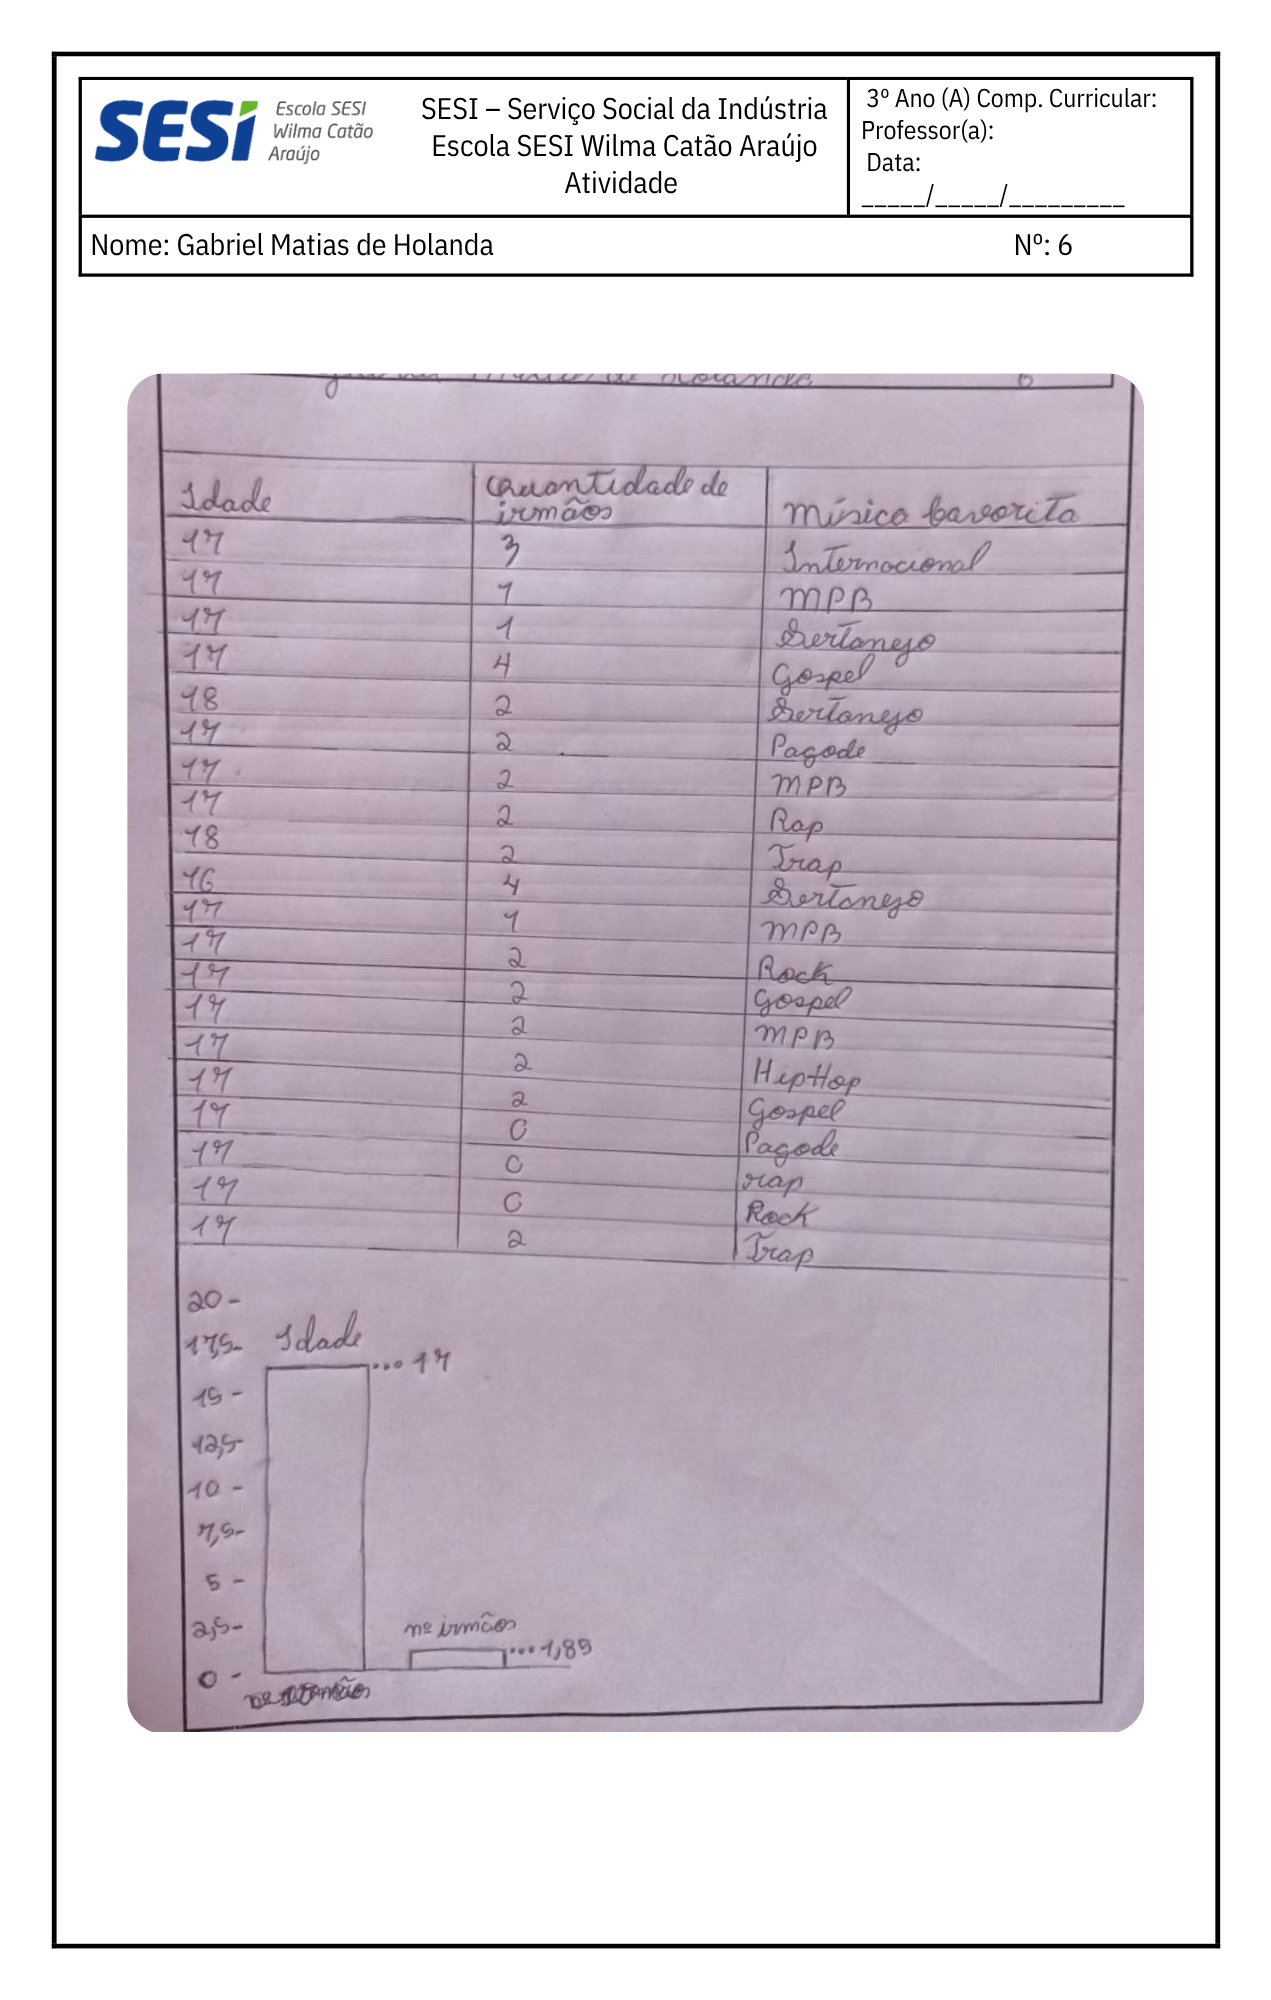 SESI
Escola SESI
Wilma Catão
Araújo
SESI – Serviço Social da Indústria
Escola SESI Wilma Catão Araújo
Atividade
3º Ano (A) Comp. Curricular:
Professor(a):
Data:
_____/_____/_________
Nome: Gabriel Matias de Holanda Nº: 6
Idade Quantidade de irmãos Música favorita
17 3 Internacional
17 1 MPB
17 1 Sertanejo
17 4 Gospel
18 2 Sertanejo
17 2 Pagode
17 2 MPB
17 2 Rap
18 2 Trap
16 4 Sertanejo
17 1 MPB
17 2 Rock
17 2 Gospel
17 2 MPB
17 2 HipHop
17 2 Gospel
17 0 Pagode
17 0 rap
17 0 Rock
17 2 Trap
20 -
17,5-
Idade
... 17
15 -
12,5-
10 -
7,5-
5 -
2,5-
nº irmãos
...1,89
0 -